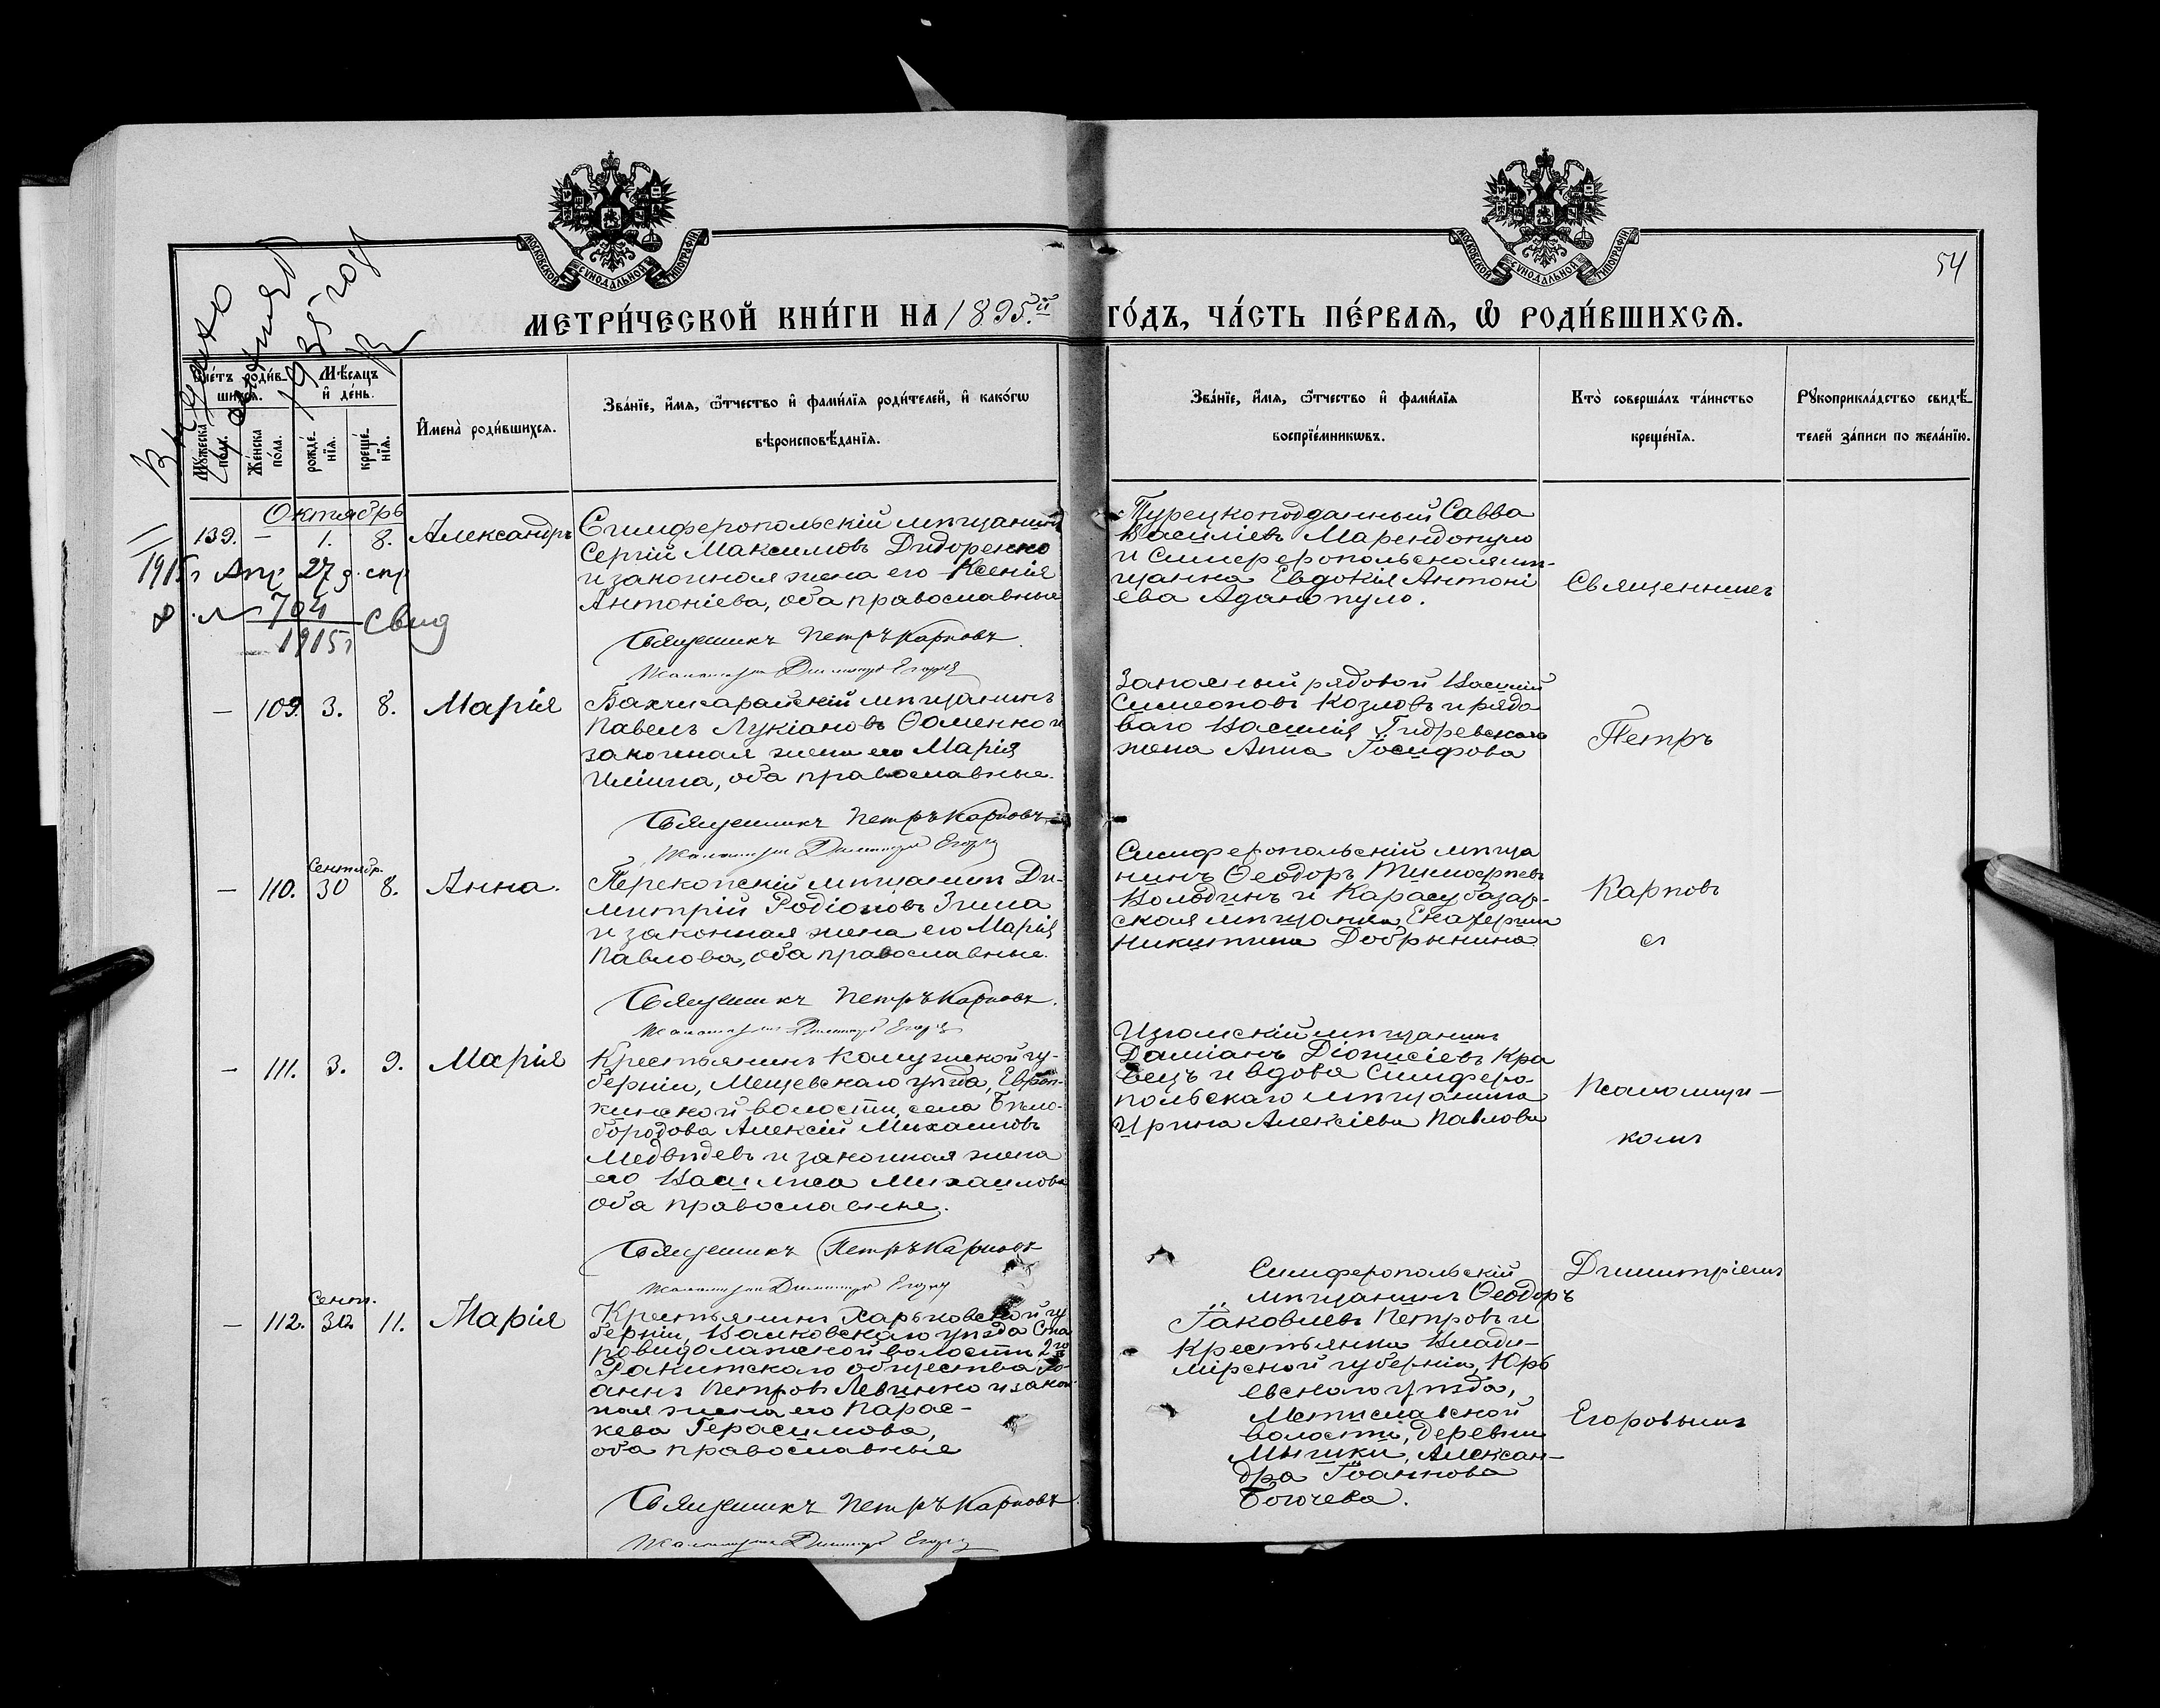 МОСКОВСКОЙ СѴНОДАЛЬНОЙ ТИПОГРАФІИ
МОСКОВСКОЙ СѴНОДАЛЬНОЙ ТИПОГРАФІИ
54
МЕТРИ́ЧЕСКОЙ КНИ́ГИ НА 1895.й ГО́ДЪ, ЧА́СТЬ ПЕ́РВАѦ, Ѡ҆ РОДИ́ВШИХСѦ.
Сче́тъ роди́вшихсѧ.
Мꙋ́жеска по́ла.
Же́нска по́ла.
Мѣ́сѧцъ и҆ де́нь.
рожде́нїѧ.
креще́нїѧ.
И҆мена̀ роди́вшихсѧ.
Зва́нїе, и҆́мѧ, ѻ҆́тчество и҆ фами́лїѧ роди́телей, и҆ како́гѡ
вѣроисповѣ́данїѧ.
Зва́нїе, и҆́мѧ, ѻ҆́тчество и҆ фами́лїѧ
воспрїе́мникѡвъ.
Кто̀ соверша́лъ та́инство
креще́нїѧ.
Рꙋкоприкла́дство свидѣ́-
телей за́писи по жела́нїю.
Октябрь
139. — 1. 8. Александръ
Симферопольскій мѣщанинъ
Сергій Максимовъ Дидоренко
и законная жена его Ксенія
Антоніева, оба православные
Священникъ Петръ Карповъ
Турецкоподданный Савва
Василіевъ Марендопуло
и Симферопольская мѣ-
щанка Евдокія Антоні
ева Адамопуло.
Священникъ
1915 г
704
1915 г
Свид
— 109. 3. 8. Марія
Бахчисарайскій мѣщанинъ
Павелъ Лукіановъ Ѳоменко и
законная жена его Марія
Иліина, оба православные.
Священникъ Петръ Карповъ
Запасный рядовой Василій
Симеоновъ Козловъ и рядо
ваго Василія
жена Анна Іосифова
Петръ
— 110. Сентябр. 30 8. Анна.
Перекопскій мѣщанинъ Ди-
митрій Родіоновъ Зима
и законная жена его Марія
Павлова, оба православные.
Священникъ Петръ Карповъ.
Симферопольскій мѣща
нинъ Ѳеодоръ Тимоѳеевъ
Володинъ и Карасубазар-
ская мѣщанка Екатерина
Никитина Добрынина
Карповъ
съ
— 111. 3. 9. Марія
Крестьянинъ Калужской гу-
берніи, Мещевскаго уѣзда,
кинской волости, села Бѣло-
бородова Алексій Михаиловъ
Медвѣдевъ и законная жена
его Василиса Михаилова
оба православные.
Священникъ Петръ Карповъ
Изюмскій мѣщанинъ
Даміанъ Діонисіевъ Кра
вецъ и вдова Симферо-
польскаго мѣщанина
Ирина Алексіева Павлова
Псаломщи-
комъ
— 112. Сент. 30. 11. Марія
Крестьянинъ Харьковской гу
берніи, Валковскаго уѣзда Ста
роводолажской волости 2го
Ракитскаго общества Іо-
аннъ Петровъ Левченко и закон
ная жена его Парас-
кева Герасимова,
оба православные
Священникъ Петръ Карповъ
Симферопольскій
мѣщанинъ Ѳеодоръ
Іаковлевъ Петровъ и
Крестьянка Влади-
мірской губерніи, Юрь
евскаго уѣзда,
Мстиславской
волости, деревни
Мышки, Алексан-
дра Іоаннова
Богачева.
Димитріемъ
Егоровымъ